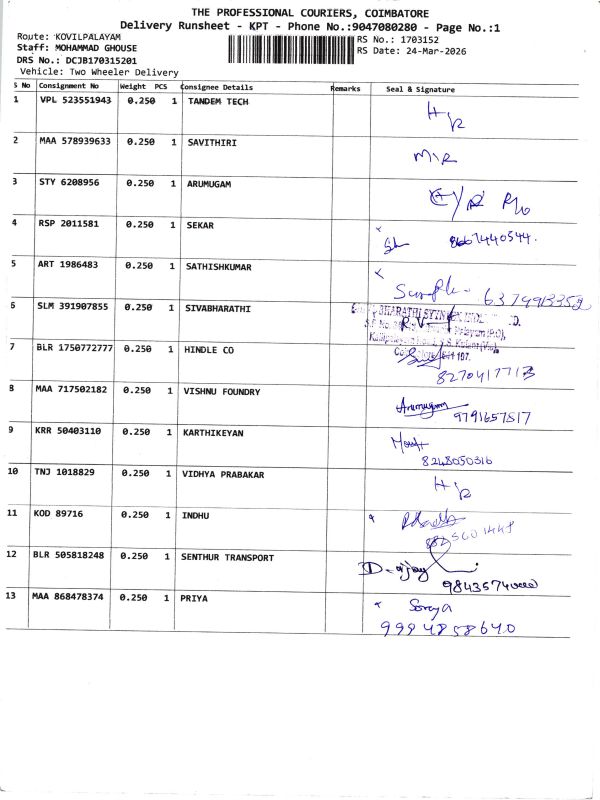 THE PROFESSIONAL COURIERS, COIMBATORE
Delivery Runsheet - KPT - Phone No.:9047080280 - Page No.:1
Route: KOVILPALAYAM
RS No.: 1703152
Staff: MOHAMMAD GHOUSE
RS Date: 24-Mar-2026
DRS No.: DCJB170315201
Vehicle: Two Wheeler Delivery
S No Consignment No Weight PCS Consignee Details Remarks Seal & Signature
1 VPL 523551943 0.250 1 TANDEM TECH
2 MAA 578939633 0.250 1 SAVITHIRI
3 STY 6208956 0.250 1 ARUMUGAM
4 RSP 2011581 0.250 1 SEKAR 8667440544.
5 ART 1986483 0.250 1 SATHISHKUMAR 6379913352
6 SLM 391907855 0.250 1 SIVABHARATHI
7 BLR 1750772777 0.250 1 HINDLE CO
8 MAA 717502182 0.250 1 VISHNU FOUNDRY Arumugam 9791657817
9 KRR 50403110 0.250 1 KARTHIKEYAN 8248050316
10 TNJ 1018829 0.250 1 VIDHYA PRABAKAR
11 KOD 89716 0.250 1 INDHU
12 BLR 505818248 0.250 1 SENTHUR TRANSPORT
13 MAA 868478374 0.250 1 PRIYA
9994858640